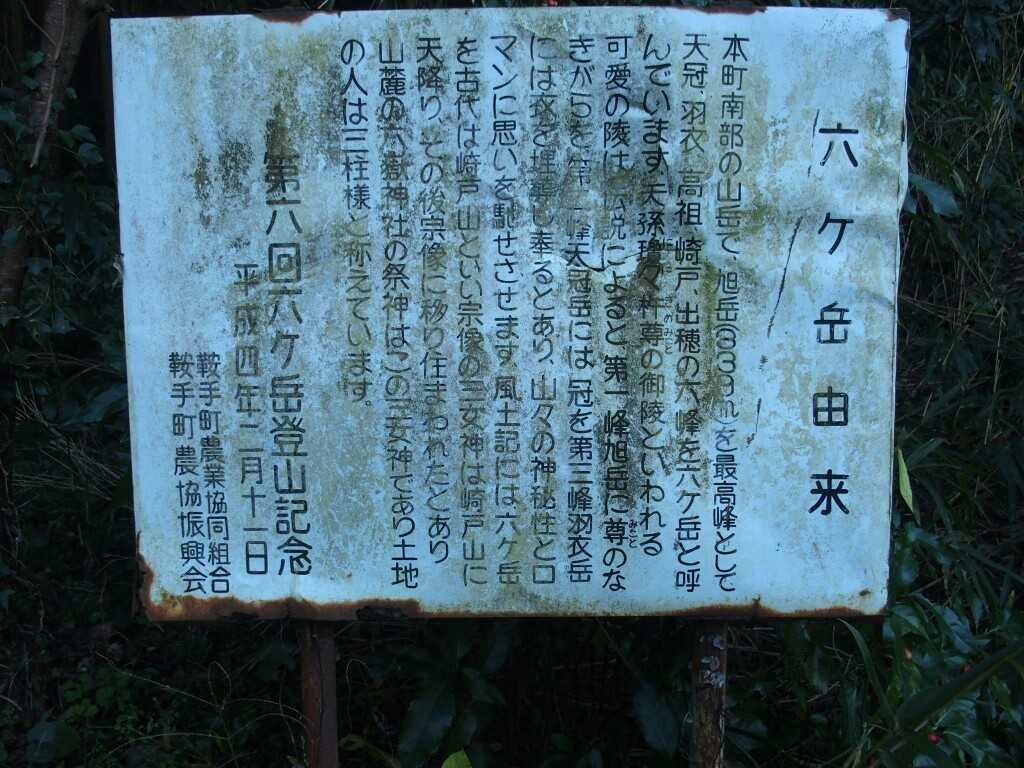 六ケ岳由来
本町南部の山岳で、旭岳(339m)を最高峰として
天冠、羽衣、高祖、崎戸、出穂の六峰を六ケ岳と呼
んでいます。天孫瓊々杵尊の御陵といわれる
可愛の陵は伝説によると第一峰旭岳に尊のな
みこと
きがらを第二峰天冠岳には冠を第三峰羽衣岳
には衣を埋葬し奉るとあり、山々の神秘性とロ
マンに思いを馳せさせます。風土記には六ケ岳
を古代は崎戸山といい宗像の三女神は崎戸山に
天降り、その後宗像に移り住まわれたとあり
山麓の六嶽神社の祭神はこの三女神であり土地
の人は三柱様と称えています。
第六回六ケ岳登山記念
平成四年二月十一日
鞍手町農業協同組合
鞍手町農協振興会